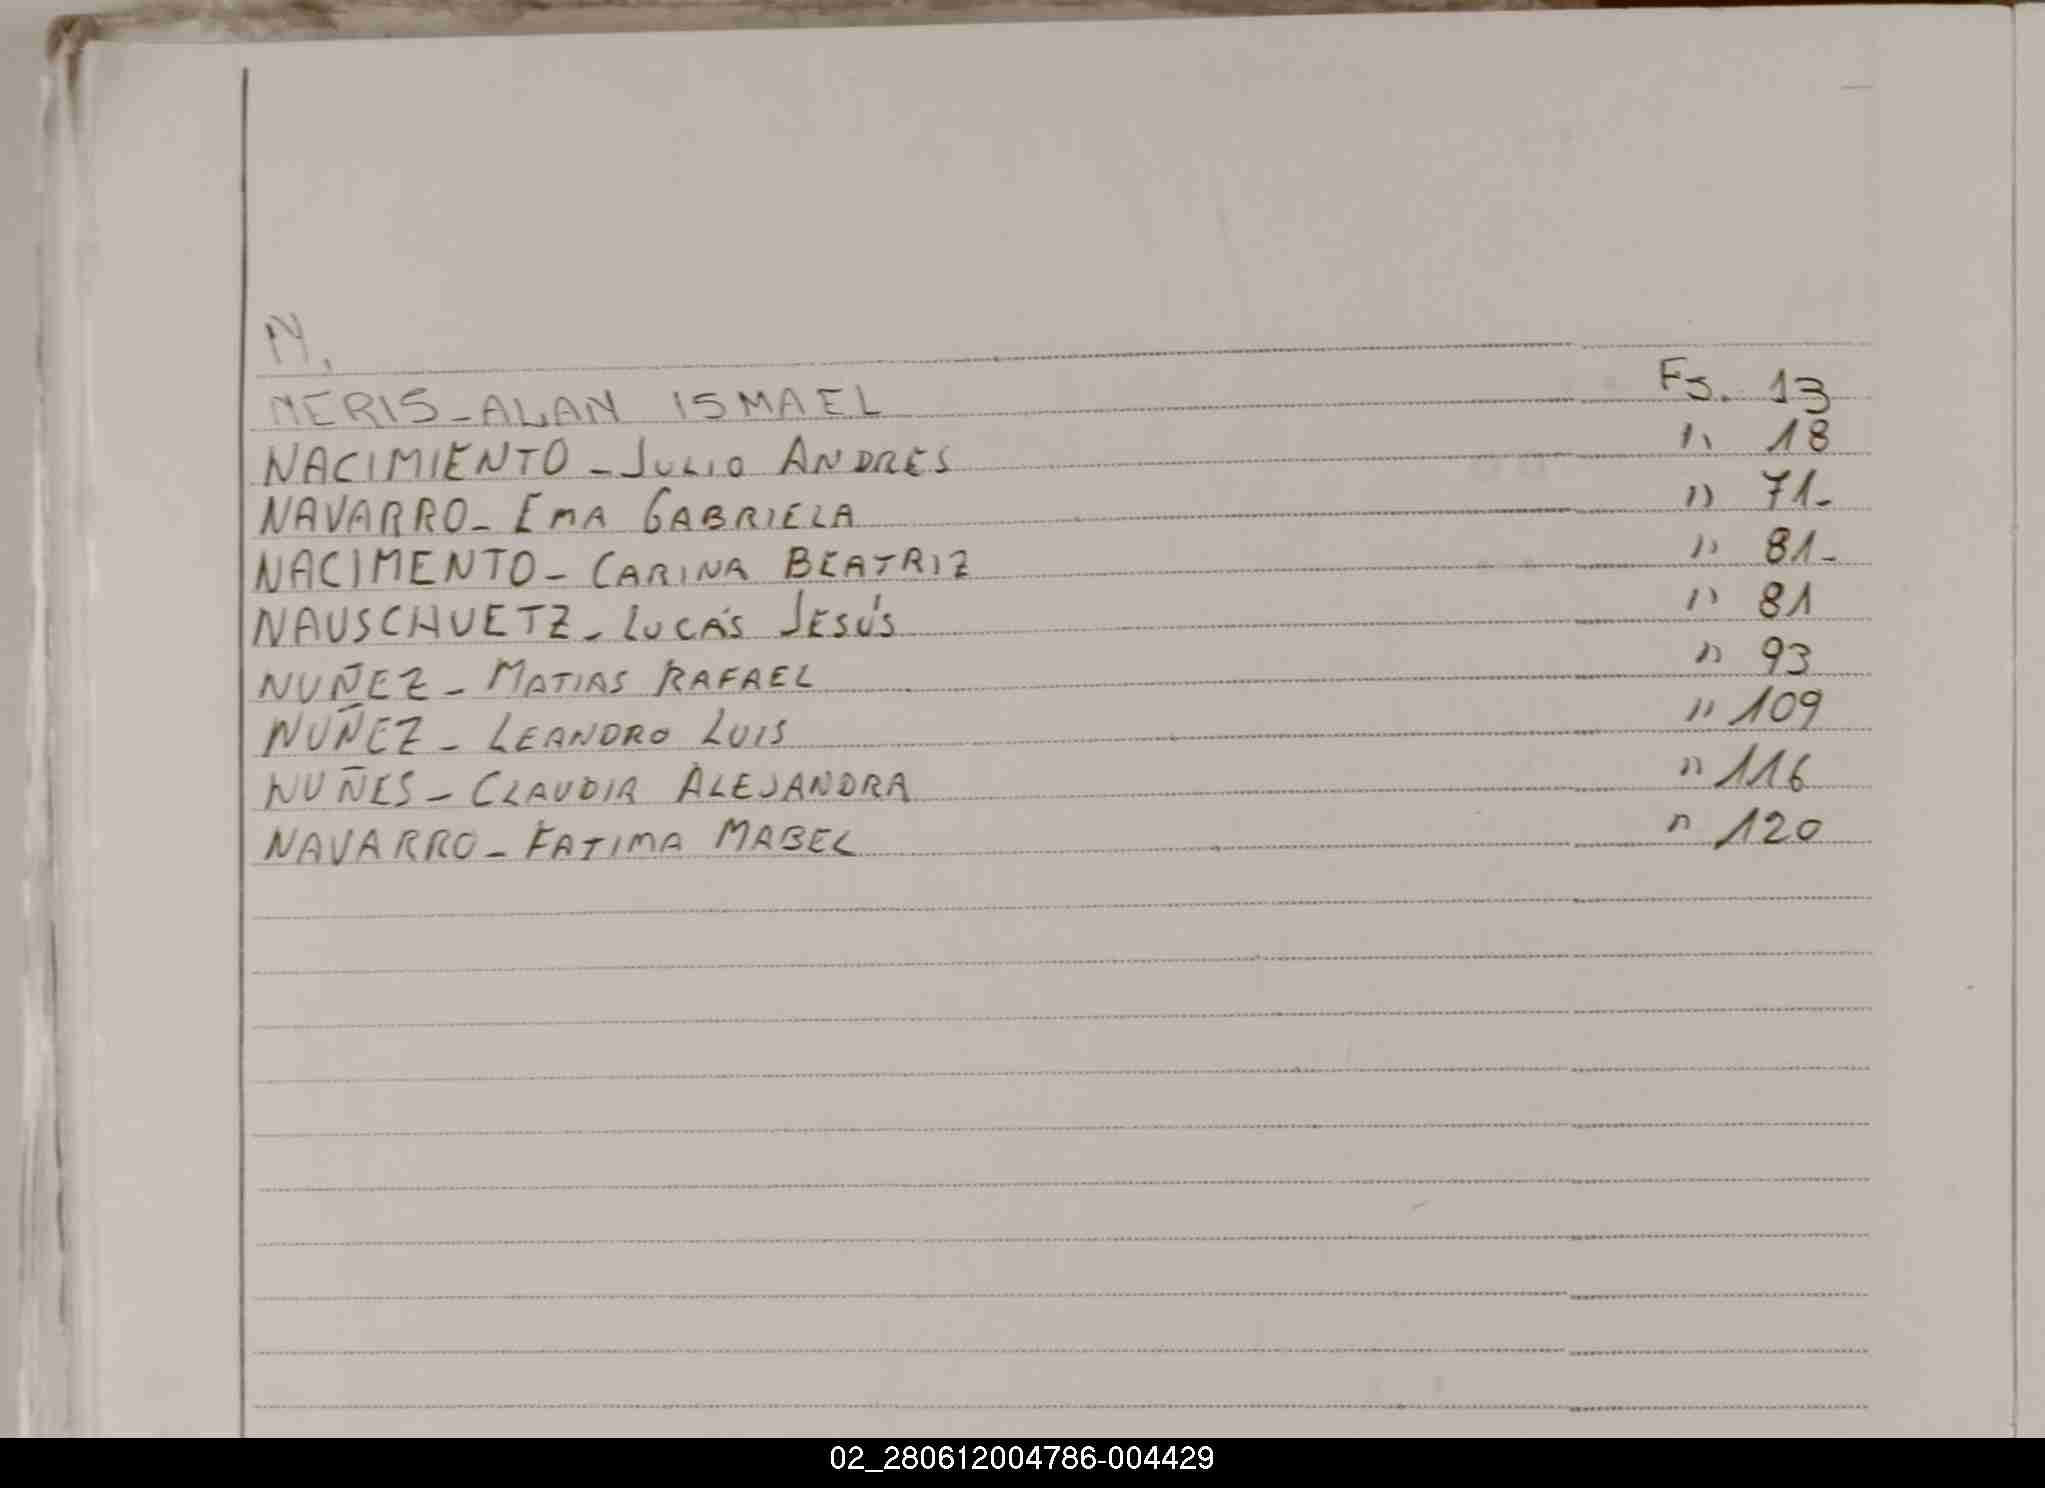 N.
NERIS-ALAN ISMAEL Fs. 13
NACIMIENTO - JULIO ANDRES " 18
NAVARRO - EMA GABRIELA " 71-
NACIMENTO - CARINA BEATRIZ " 81-
NAUSCHUETZ - LUCÁS JESÚS " 81
NUÑEZ - MATIAS RAFAEL " 93
NUÑEZ - LEANDRO LUIS " 109
NUÑES - CLAUDIA ALEJANDRA " 116
NAVARRO - FATIMA MABEL " 120
02_280612004786-004429